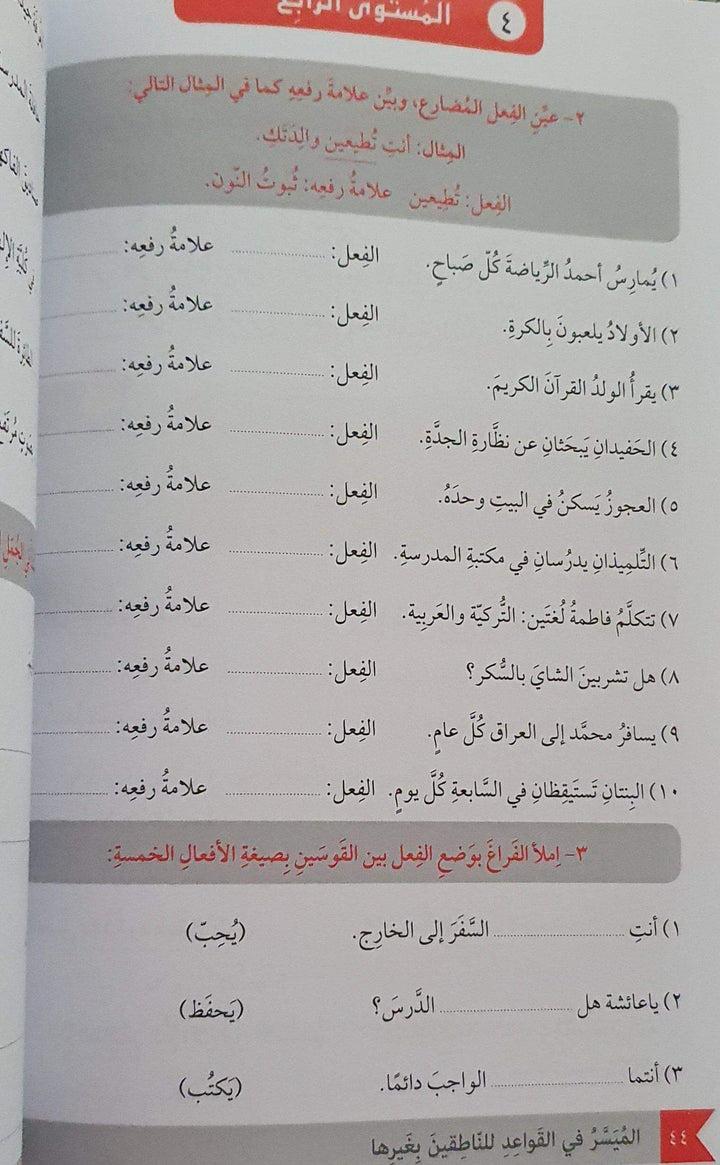 ٤ المُستوى الرابع
٢- عيِّنِ الفِعل المُضارِع، وبيِّن علامةَ رفعِهِ كما في المِثال التالي:
المِثال: أنتِ تُطيعين والِدَتَكِ.
الفِعل: تُطِيعين علامةُ رفعِه: ثُبوتُ النّون.
١) يُمارِسُ أحمدُ الرِّياضةَ كُلّ صَباحٍ. الفِعل: .................... علامةُ رفعِه: ....................
٢) الأولادُ يلعبونَ بِالكرةِ. الفِعل: .................... علامةُ رفعِه: ....................
٣) يقرأُ الولدُ القرآنَ الكريمَ. الفِعل: .................... علامةُ رفعِه: ....................
٤) الحَفيدانِ يَبحَثانِ عن نظَّارةِ الجدَّةِ. الفِعل: .................... علامةُ رفعِه: ....................
٥) العجوزُ يَسكنُ في البيتِ وحدَهُ. الفِعل: .................... علامةُ رفعِه: ....................
٦) التِّلمِيذانِ يدرُسانِ في مكتبةِ المدرسةِ. الفِعل: .................... علامةُ رفعِه: ....................
٧) تتكلَّمُ فاطمةُ لُغتَين: التُّركيّة والعَربِية. الفِعل: .................... علامةُ رفعِه: ....................
٨) هل تشربينَ الشايَ بالسُّكر؟ الفِعل: .................... علامةُ رفعِه: ....................
٩) يسافرُ محمَّد إلى العراق كُلَّ عامٍ. الفِعل: .................... علامةُ رفعِه: ....................
١٠) البِنتانِ تَستَيقِظانِ في السَّابعةِ كُلَّ يومٍ. الفِعل: .................... علامةُ رفعِه: ....................
٣- اِملأ الفَراغَ بوَضعِ الفِعل بين القَوسَينِ بِصيغةِ الأفعالِ الخمسةِ:
١) أنتِ .................... السَّفَرَ إلى الخارِج. (يُحِبّ)
٢) ياعائشة هل .................... الدَّرسَ؟ (يَحفَظ)
٣) أنتما .................... الواجبَ دائمًا. (يَكتُب)
٤٤ المُيَسَّرُ في القَواعِدِ للنّاطِقينَ بِغَيرِها